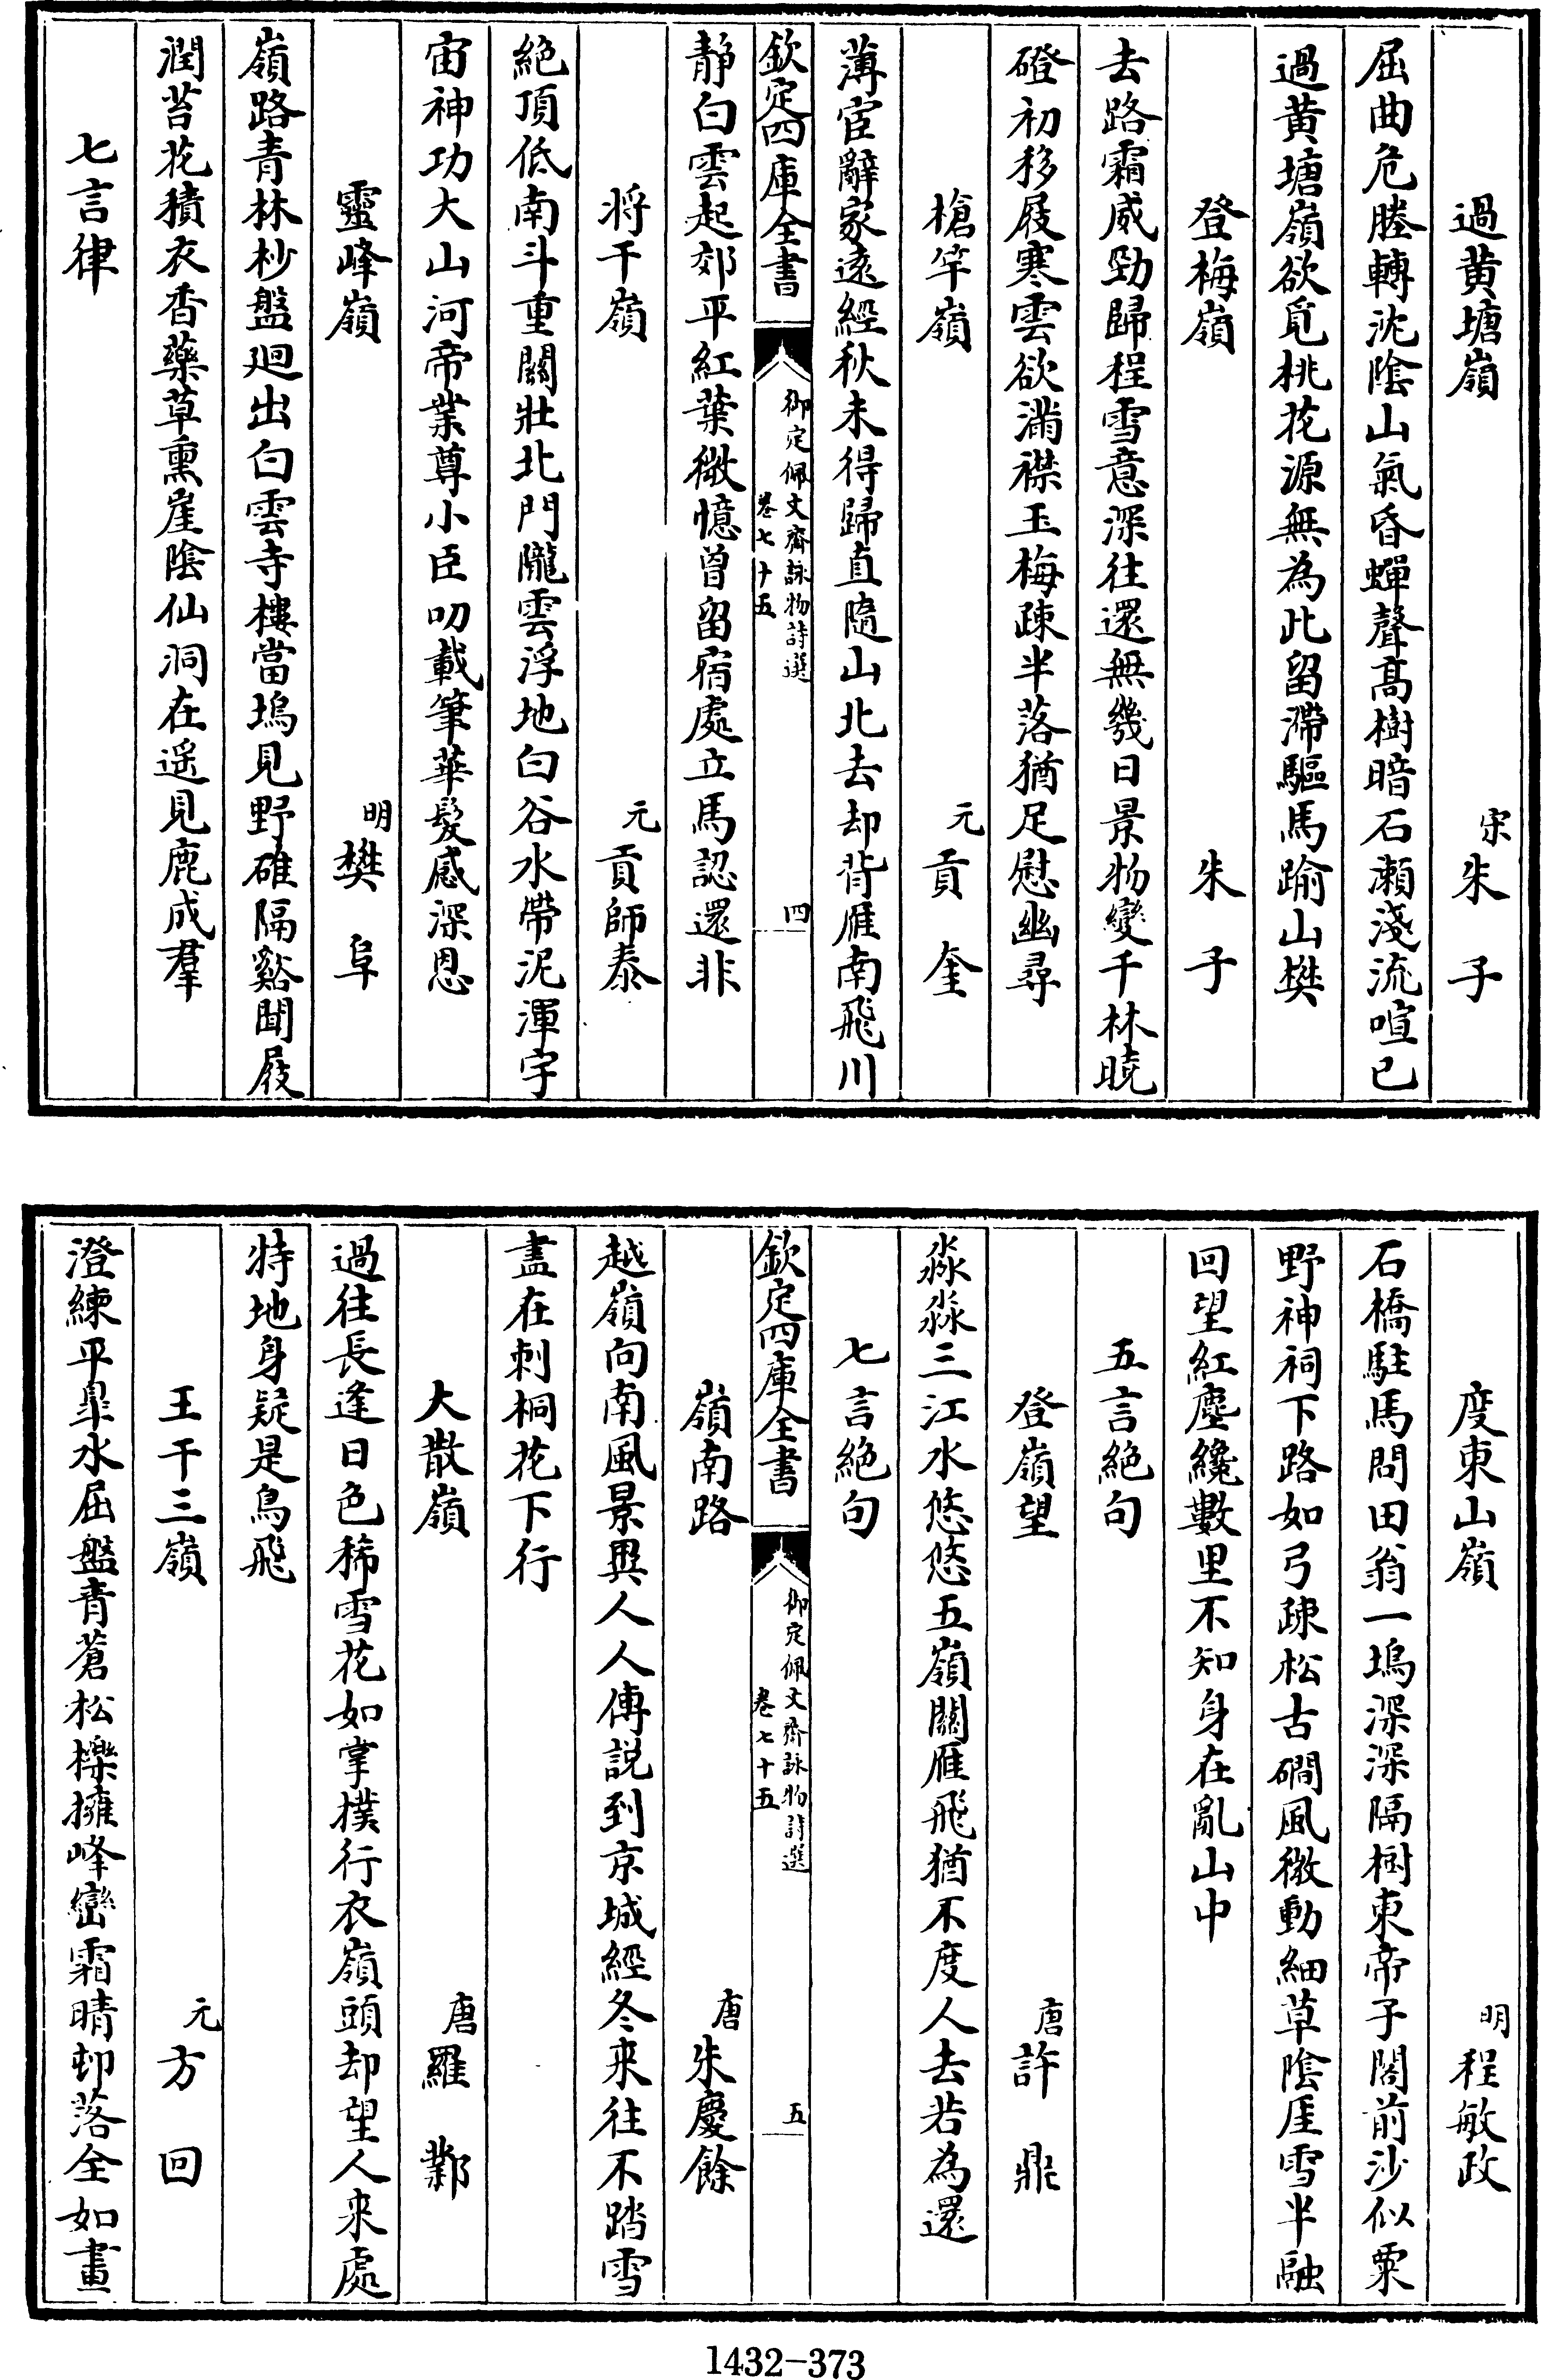 過黄塘嶺 宋朱子
屈曲危塍轉沈陰山氣昏蟬聲髙樹暗石瀬淺流喧已
過黄塘嶺欲覓桃花源無為此留滯驅馬踰山樊
登梅嶺 朱子
去路霜威勁歸程雪意深往還無幾日景物變千林曉
磴初移屐寒雲欲滿襟玉梅疎半落猶足慰幽尋
槍竿嶺 元貢奎
薄宦辭家遠經秋未得歸直隨山北去却背雁南飛川
欽定四庫全書 御定佩文齋詠物詩選 卷七十五 四
静白雲起郊平紅葉微憶曾留宿處立馬認還非
將干嶺 元貢師泰
絶頂低南斗重關壯北門隴雲浮地白谷水帶泥渾宇
宙神功大山河帝業尊小臣叨載筆華髮感深恩
靈峰嶺 明樊阜
嶺路青林杪盤廻出白雲寺樓當塢見野碓隔谿聞屐
潤苔花積衣香藥草熏崖陰仙洞在遥見鹿成羣
七言律
度東山嶺 明程敏政
石橋駐馬問田翁一塢深深隔樹東帝子閣前沙似粟
野神祠下路如弓疎松古磵風微動細草陰厓雪半融
回望紅塵纔數里不知身在亂山中
五言絶句
登嶺望 唐許鼎
淼淼三江水悠悠五嶺關雁飛猶不度人去若為還
七言絶句
欽定四庫全書 御定佩文齋詠物詩選 卷七十五 五
嶺南路 唐朱慶餘
越嶺向南風景異人人傳説到京城經冬来往不踏雪
盡在刺桐花下行
大散嶺 唐羅鄴
過往長逢日色稀雪花如掌撲行衣嶺頭却望人来處
特地身疑是鳥飛
王干三嶺 元方回
澄練平皐水屈盤青蒼松櫟擁峰巒霜晴邨落全如畫
1432-373